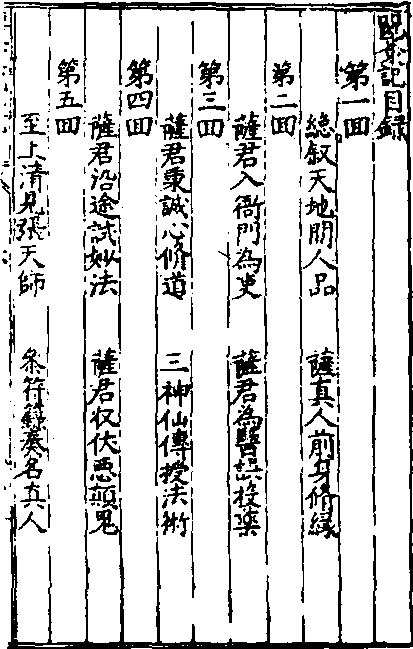 呪棗記目錄
第一回
總叙天地間人品　薩真人前身修緣
第二回
薩君入衙門為吏　薩君為醫誤投藥
第三回
薩君秉誠心修道　三神仙傳授法術
第四回
薩君沿途試妙法　薩君收伏惡顛鬼
第五回
至上清見張天師　參符籙奏名真人